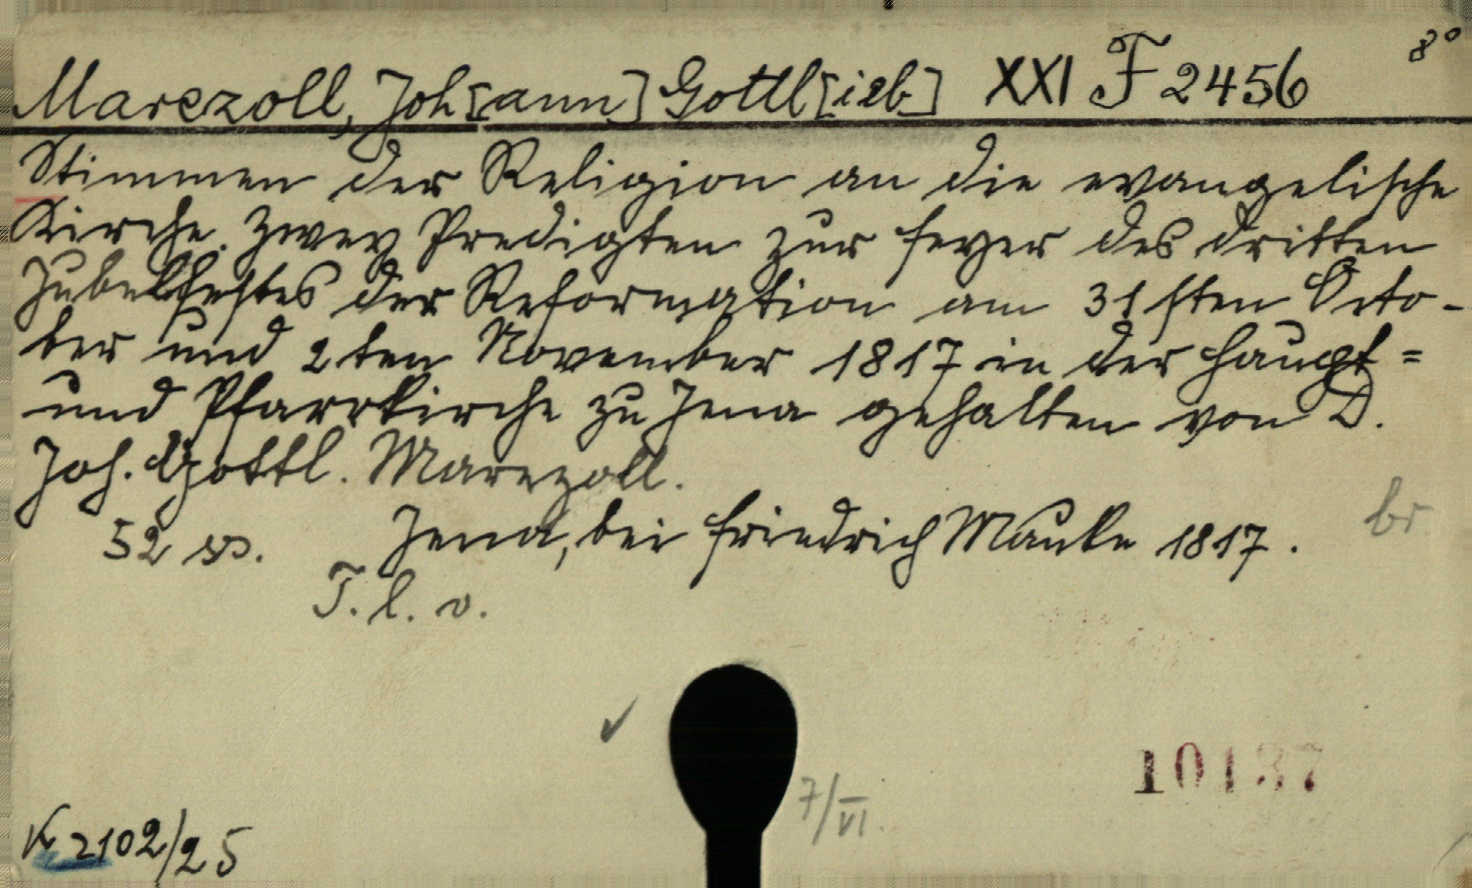 Marezoll, Joh[ann] Gottl[ieb] XXI F 2456 8°
Stimmen der Religion an die evangelische
Kirche. Zwey Predigten zur Feyer des dritten
Jubelfestes der Reformation am 31sten Octo-
ber und 2ten November 1817 in der Haupt=
und Pfarrkirche zu Jena gehalten von D.
Joh. Gottl. Marezoll.
52 SS. Jena, bei Friedrich Mauke 1817. br
T. l. v.
10137
7/VI.
K 2102/25